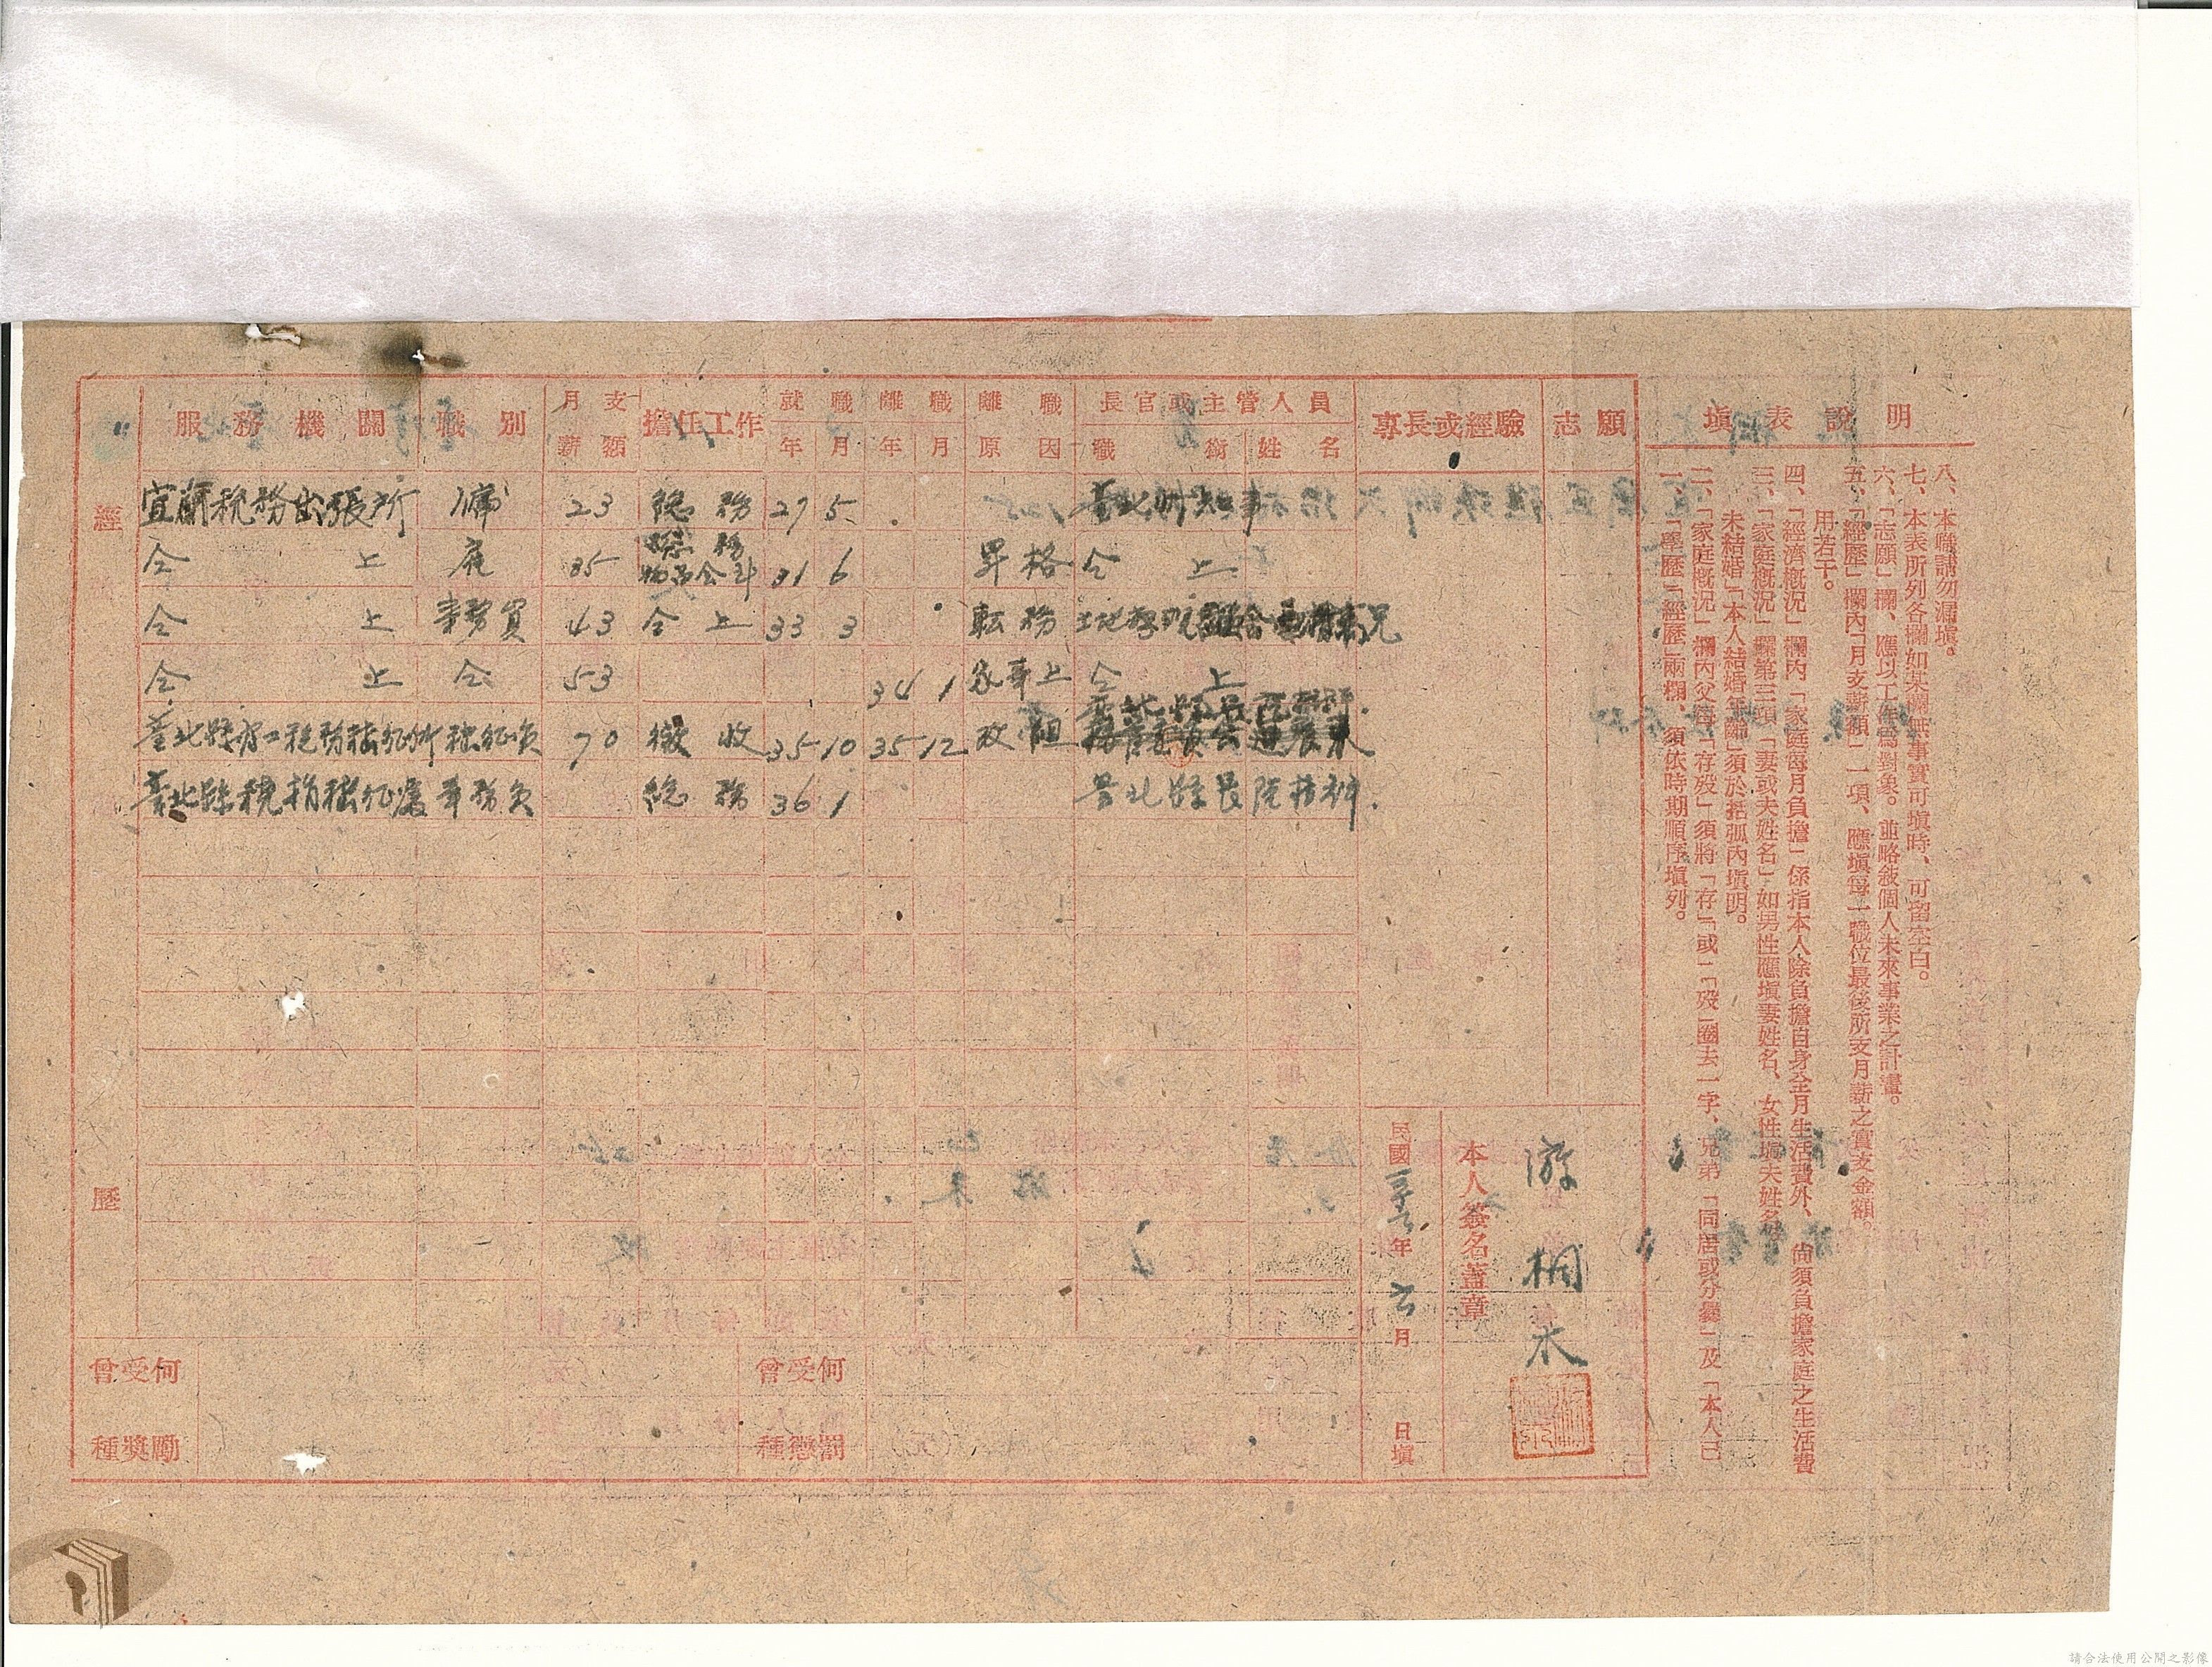 服務機關 職別 月支薪額 擔任工作 就職年月 離職年月 離職原因 長官或主管人員 職銜 姓名 專長或經驗 志願
經歷
宜蘭稅務出張所 傭 23 總務 27 5 臺北州知事
仝上 雇 35 總務 會計 31 6 昇格 仝上
仝上 事務員 43 仝上 33 3 転務
仝上 仝 53 34 1 家事上 仝上
臺北縣 稅務稽征所 稽征員 70 徵收 35 10 35 12 改組
臺北縣稅捐稽征處 事務員 總務 36 1 臺北縣長
曾受何種獎勵
曾受何種懲罰
游桐木
本人簽名蓋章
民國 年 六月 日填
填表說明
一、「學歷」「經歷」兩欄、須依時期順序填列。
二、「家庭概況」欄內父母「存歿」須將「存」或「歿」圈去一字、兄弟「同居或分爨」及「本人已
未結婚」「本人結婚年齡」須於括弧內填明。
三、「家庭概況」欄第三項「妻或夫姓名」如男性應填妻姓名、女性填夫姓名。
四、「經濟概況」欄內「家庭每月負擔」係指本人除負擔自身全月生活費外、尙須負擔家庭之生活費
用若干。
五、「經歷」欄內「月支薪額」一項、應填每一職位最後所支月薪之實支金額。
六、「志願」欄、應以工作為對象。並略敍個人未來事業之計畫。
七、本表所列各欄如某欄無事實可填時、可留空白。
八、本職請勿漏填。
請合法使用公開之影像